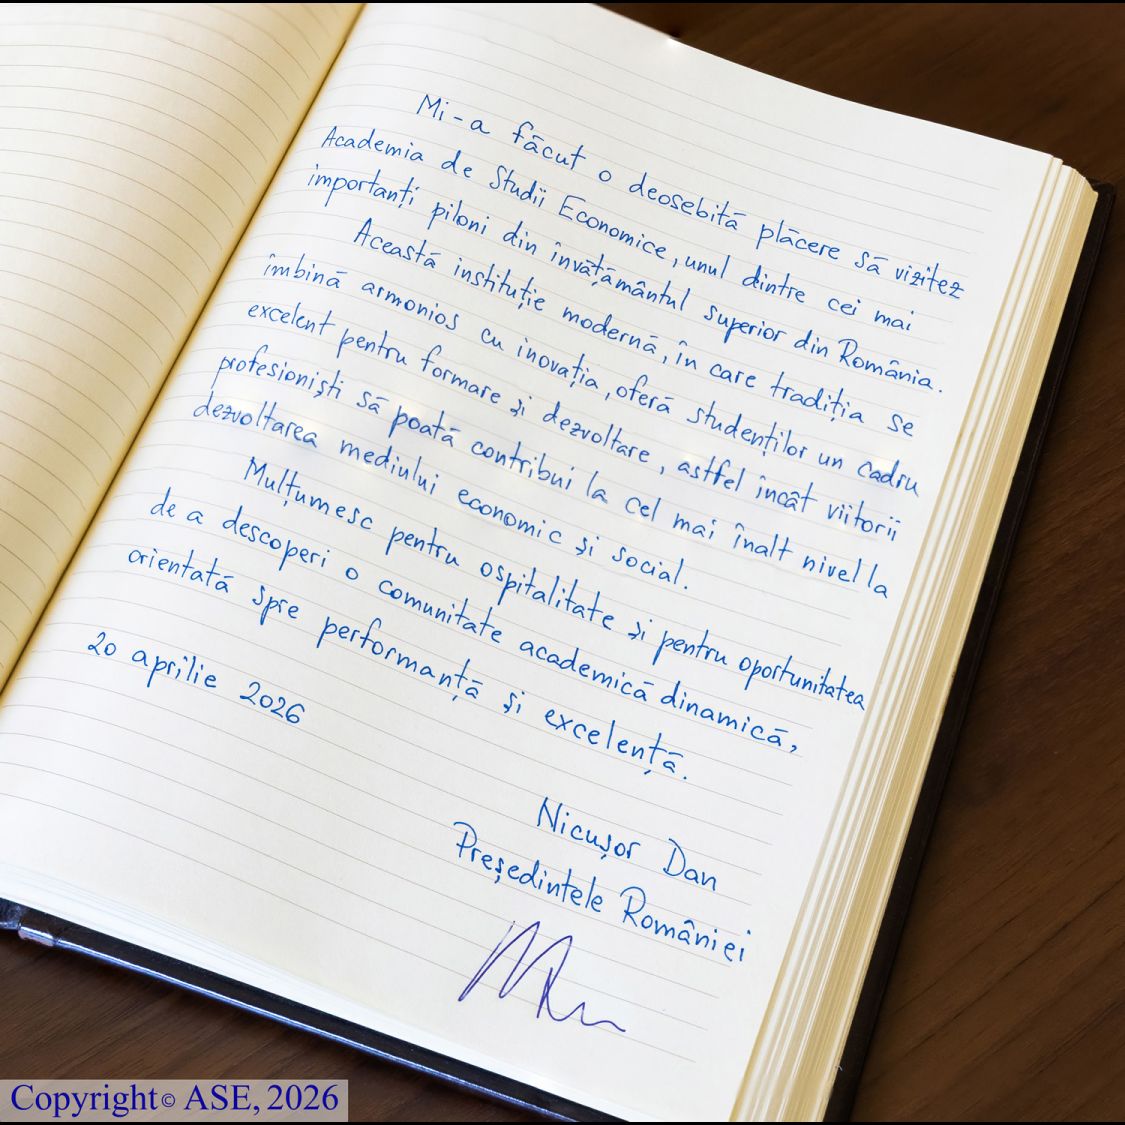 Mi-a făcut o deosebită plăcere să vizitez
Academia de Studii Economice, unul dintre cei mai
importanți piloni din învățământul superior din România.
Această instituție modernă, în care tradiția se
îmbină armonios cu inovația, oferă studenților un cadru
excelent pentru formare și dezvoltare, astfel încât viitorii
profesioniști să poată contribui la cel mai înalt nivel la
dezvoltarea mediului economic și social.
Mulțumesc pentru ospitalitate și pentru oportunitatea
de a descoperi o comunitate academică dinamică,
orientată spre performanță și excelență.
20 aprilie 2026
Nicușor Dan
Președintele României
Copyright © ASE, 2026